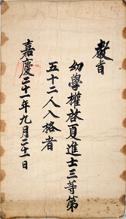 教旨
幼學權啓夏進士三等第
五十二人入格者
嘉慶二十一年九月二十一日